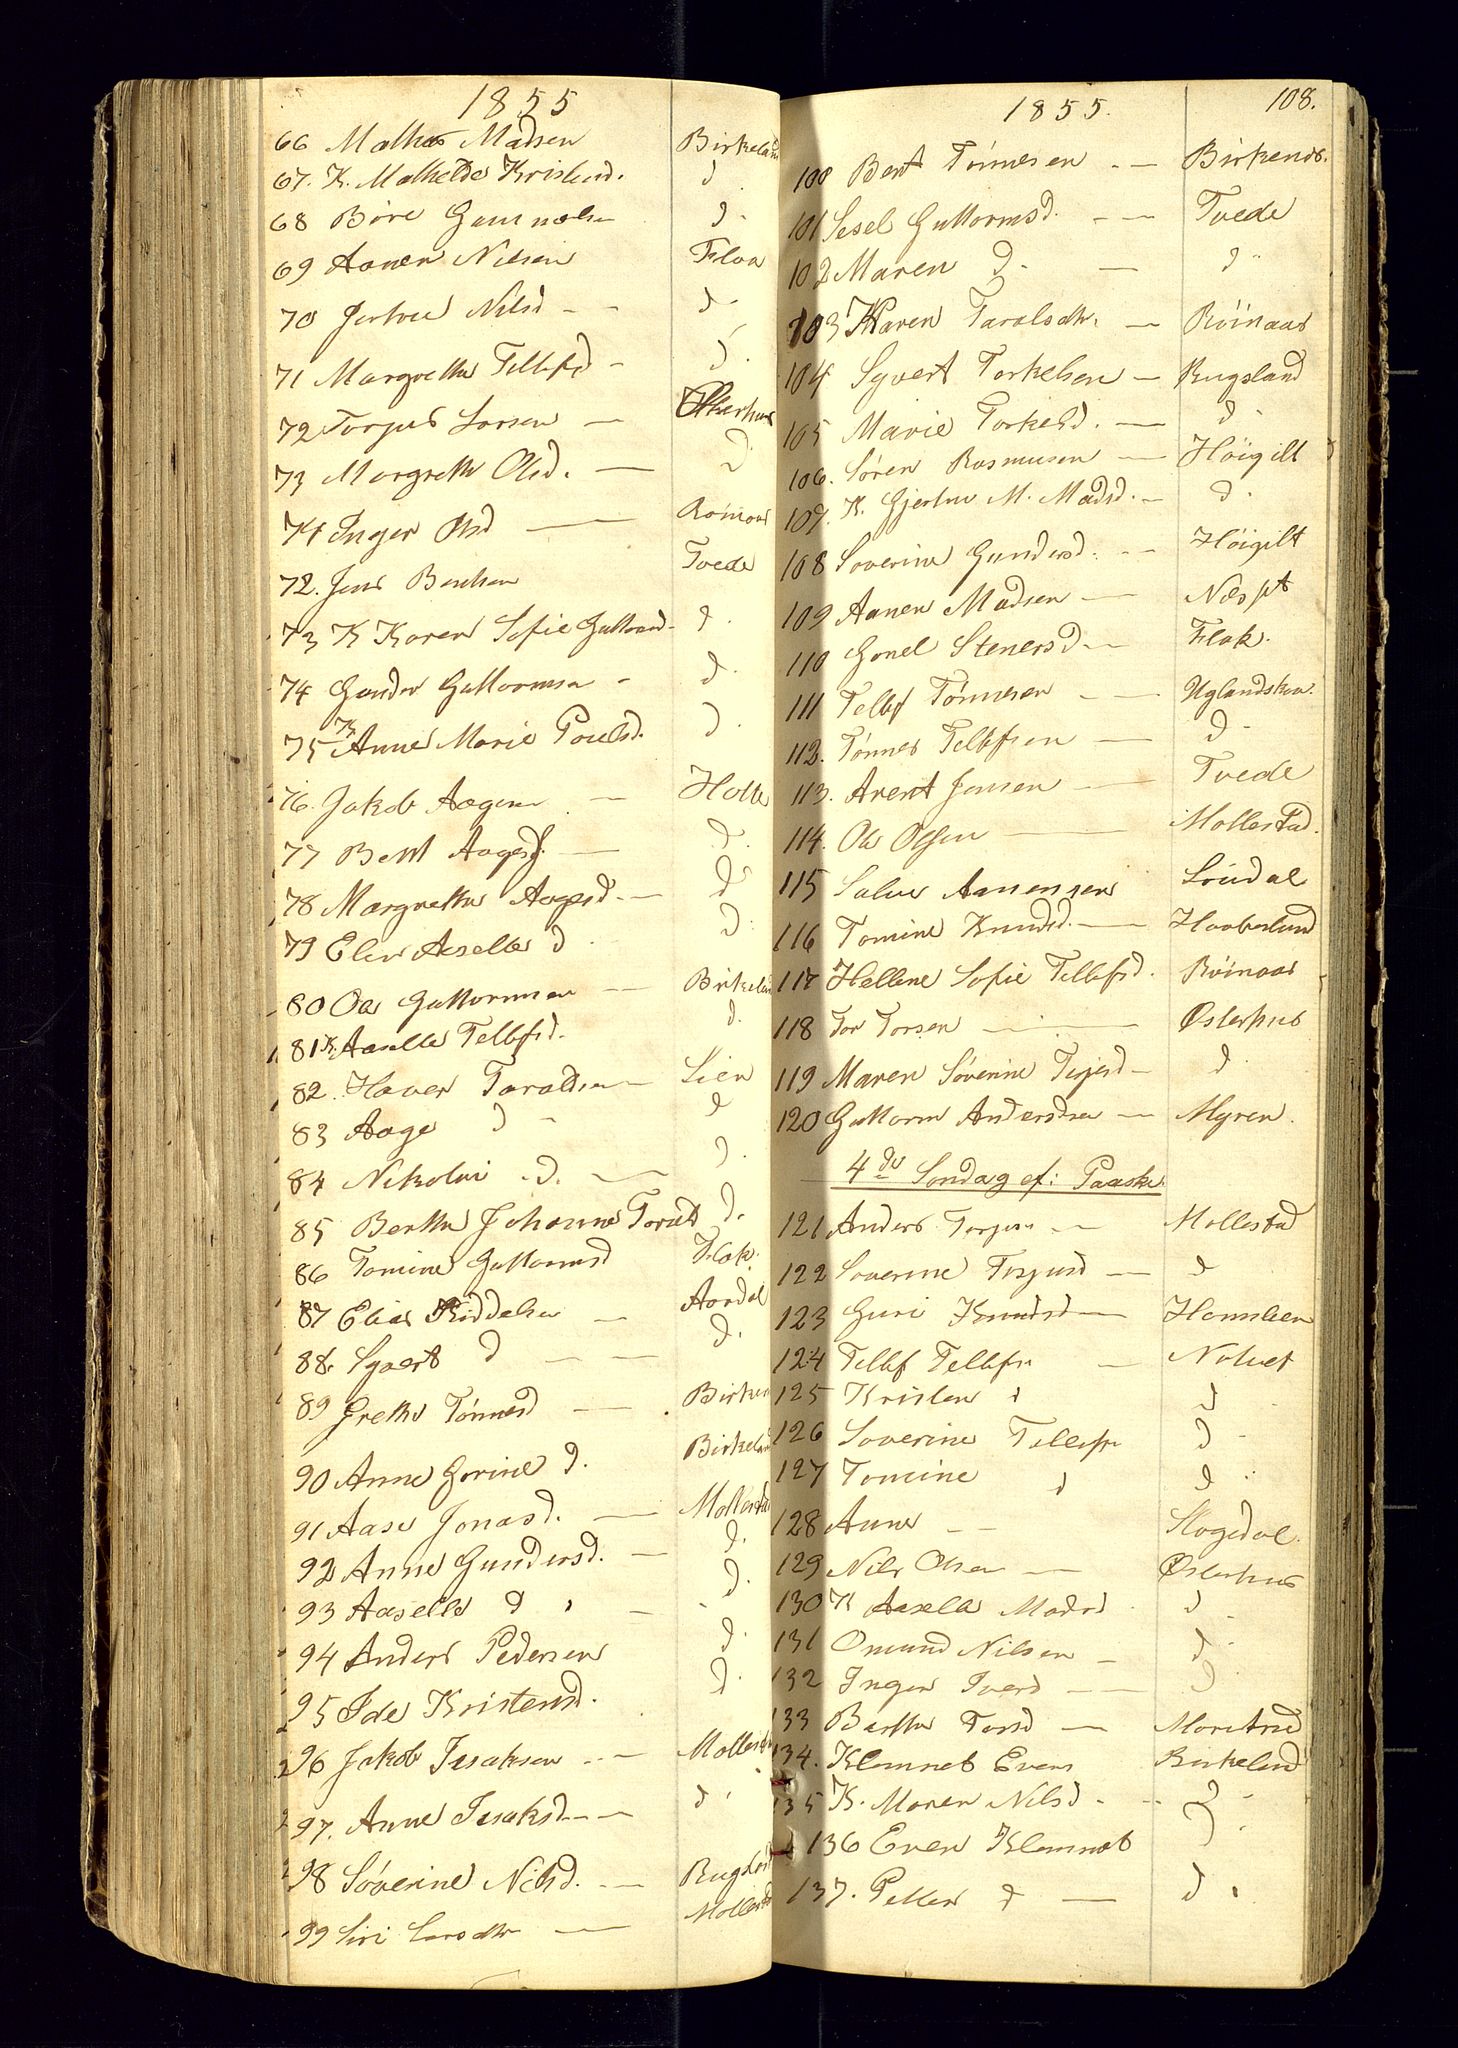 1855
66 Mathes Madsen Birkeland
67. K. Mathelde Kristensd. d
68 Böre Gunnelsen d.
69 Aanen Nilsen Flaa
70 Jertrue Nilsd - - d
71 Margrethe Tellefsd - d.
72 Torjus Larsen - Østerhus
73 Margrethe Olsd. - d
74 Inger Olsd - Röinaas
72. Jens Bentsen Tvede
73 K Karen Sofie Guttormsd. d.
74 Gunder Guttormsen - d.
75 K Anne Marie Poulsd. d.
76. Jakob Aagesen - Holte
77 Berit Aagesd. - d.
78 Margrethe Aagesd. - d
79 Elen Aaselle d. d.
80 Ola Guttormsen - Birkeland
81 K. Aaselle Tellefsd. d.
82. Haaver Taraldsen - Lien
83 Aage d - d
84 Nikolai d. - d.
85 Berthe Johanne Taralds d.
86 Tomine Guttormsd Flak.
87 Elias Kiddelsen - Aardal
88. Syvert d - - d.
89 Grethe Tönnesd - Birken
90 Anne Gorine d. Birkeland
91 Aase Jonasd. - Mollestad
92 Anne Gundersd. - d.
93 Aaselle d - d.
94 Anders Pedersen d.
95 Ide Kristensd. d.
96 Jakob Isaksen - Mollestad
97. Anne Isaksd. - d
98 Söverine Nilsd. - Rugsland
99 Siri Larsdtr - Mollestad
1855. 108.
100 Bent Tönnesen - Birkends.
101 Sesel Guttormsd. - Tvede
102 Maren d. - d
103 Karen Taralsdtr. - Röinaas
104 Syvert Torkelsen - Rugsland
105 Marie Torkelsd. - d
106. Sören Rasmusen - Höigilt
107. K. Gjertrue M. Madsd. - d.
108 Soverine Gundersd. - Höigilt
109 Aanen Madsen - Næs
110 Gonel Stenersd - Flak.
111 Tellef Tönnesen - Uglandskn.
112. Tönnes Tellefsen - d -
113. Arent Jensen - Tvede
114. Ole Olsen - Mollestad.
115 Salve Aanensen Söndal
116 Tomine Knudsd. - Haaberlund
117 Hellene Sofie Tellefsd. Röinaas
118 Tor Torsen - Østerhus
119 Maren Söverine Terjesd - d
120 Guttorm Andersdsen - Myren
4de Sondag ef: Paaske
121 Anders Torjusen - Mollestad
122 Soverine Torjusd - d
123 Guri Knudsd - Hannaleen
124 Tellef Tellefsn - Natvet
125 Kristen d d
126 Soverine Tellefsn d -
127 Tomine d d
128 Anne - Skogdal.
129 Nils Olsen - Østerhus
130 K Aaselle Madsd d
131 Omund Nilsen - d
132 Inger Iversd - d
133 Berthe Torsd -
134. Klemmet Evens Birkeland
135 K. Maren Nilsd - d -
136 Even Klemmet d.
137. Petter d - d.